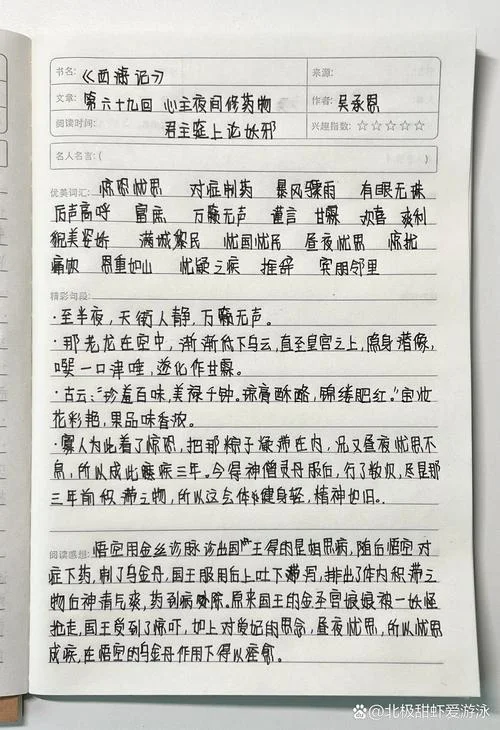 书名: 《西游记》 来源:
文章: 第六十九回 心主夜间修药物 作者: 吴承恩
阅读时间: 君主筵上论妖邪 兴趣指数: ☆☆☆☆☆
名人名言: ( )
优美词汇: 惊恐忧思 对症制药 暴风骤雨 有眼无珠
厉声高呼 富庶 万籁无声 谨言 甘霖 欢喜 爽利
貌美姿娇 满城黎民 忧国忧民 昼夜忧思 惊扰
痛饮 恩重如山 忧疑之疾 推辞 宾朋邻里
精彩句段:
·至半夜,天街人静,万籁无声。
·那老龙在空中,渐渐低下乌云,直至皇宫之上,隐身潜像,
噀一口津唾,遂化作甘霖。
·古云:“珍羞百味,美禄千钟。琼膏酥酪,锦缕肥红。”宝妆
花彩艳,果品味香浓。
·寡人为此着了惊恐,把那粽子凝滞在内,况又昼夜忧思不
息,所以成此疾三年。今得神僧灵丹服后,行了数次,尽是那
三年前积滞之物,所以这会体健身轻,精神如旧。
阅读感想: 悟空用金丝诊脉诊出国王得的是相思病,随后悟空对
症下药,制了乌金丹,国王服用后上吐下泻,排出了体内积滞之
物后神清气爽,药到病除,原来国王的金圣宫娘娘被一妖怪
抢走,国王受到了惊吓,加上对爱妃的思念,昼夜忧思,所以忧思
成疾,在悟空的乌金丹作用下得以痊愈。
@北极甜虾爱游泳